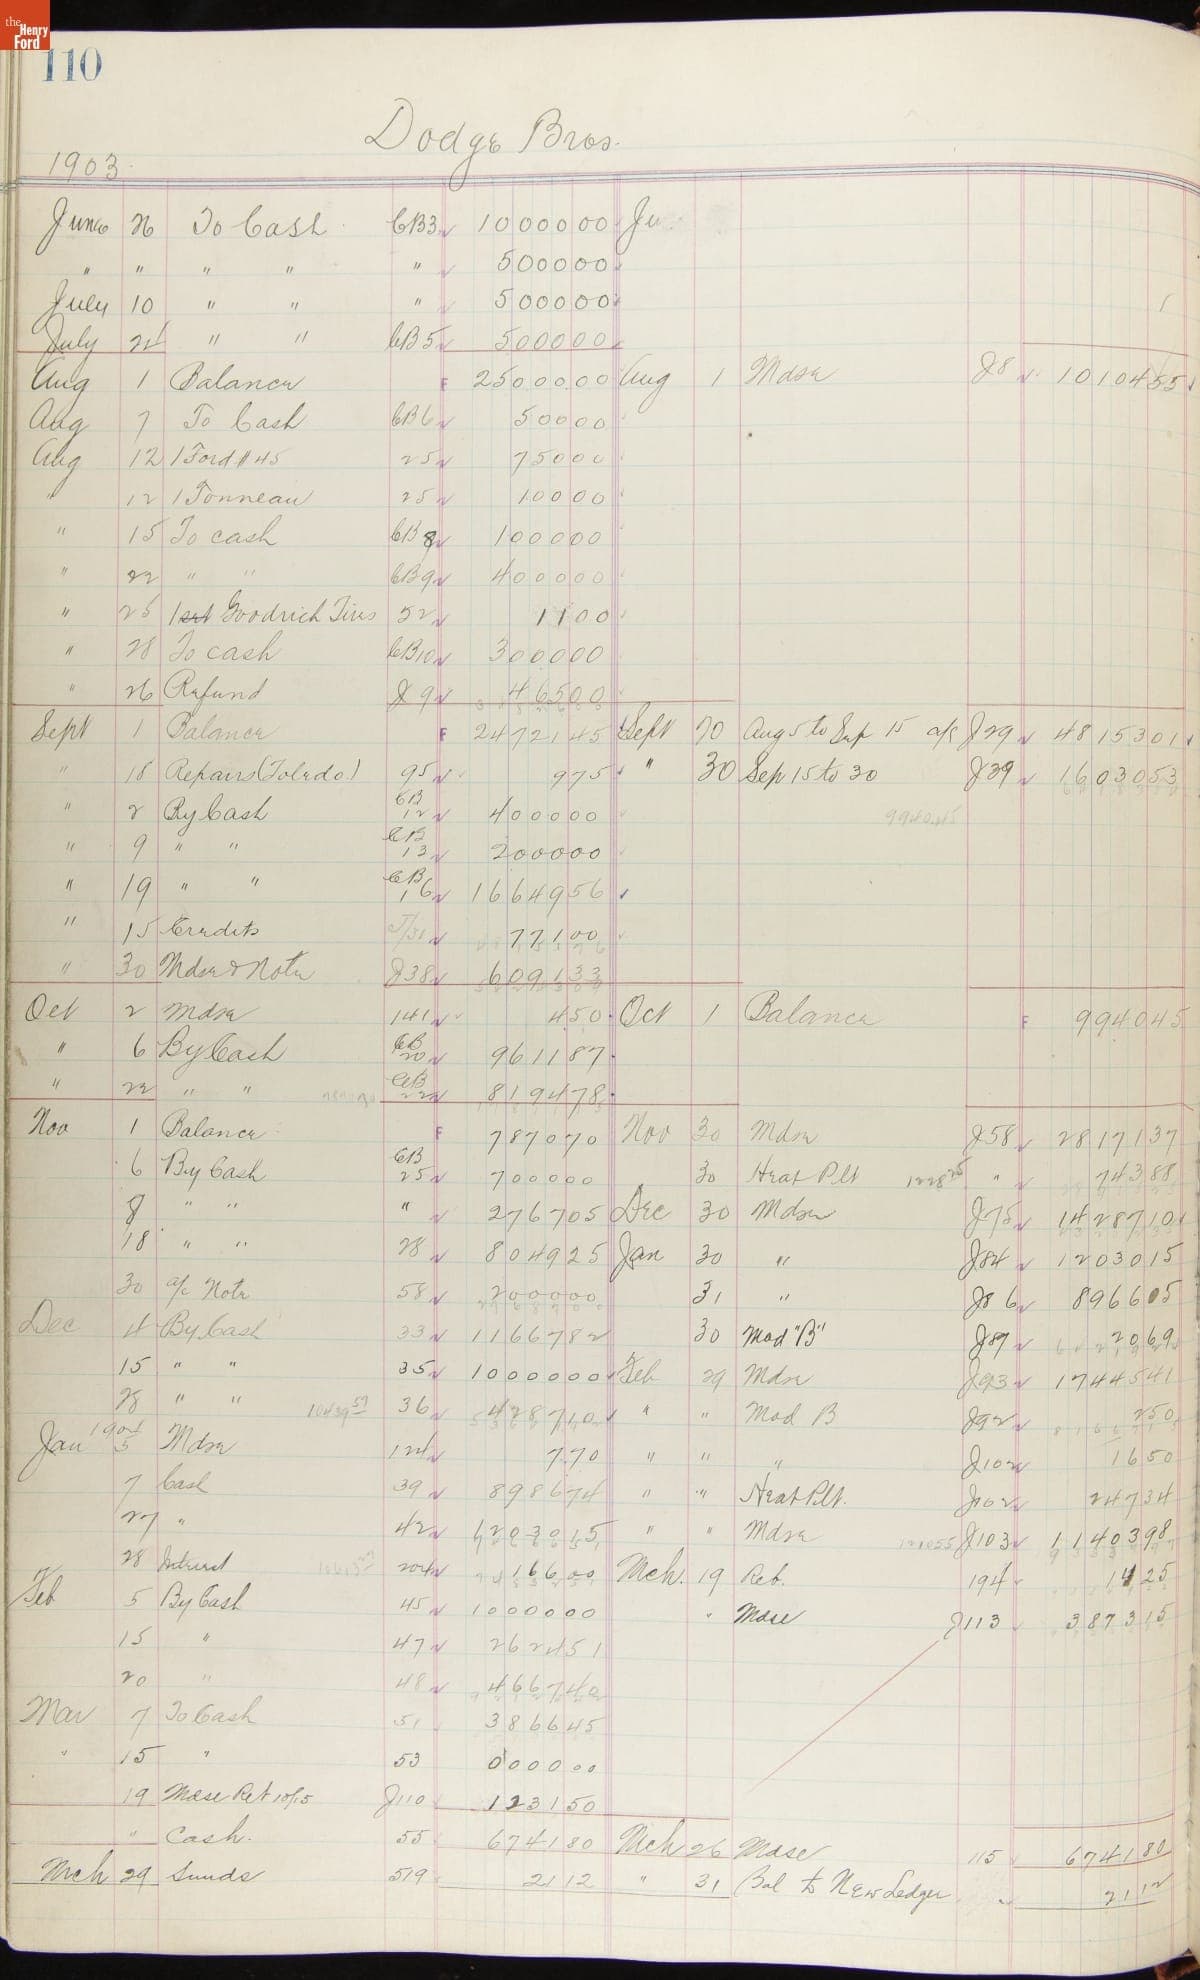 the Henry Ford
110
Dodge Bros.
1903
June 26 To Cash CB3 1000000 Ju
" " " " " 500000
July 10 " " " 500000
July 24 " " CB5 500000
Aug 1 Balance F 2500000 Aug 1 Mdse J8 1010455
Aug 7 To Cash CB6 50000
Aug 12 1 Ford #45 25 75000
" 12 1 Tonneau 25 10000
" 15 To cash CB8 100000
" 22 " " CB9 400000
" 25 1 set Goodrich Tires 52 1100
" 28 To cash CB10 300000
" 26 Refund J9 46500
Sept 1 Balance F 2472145 Sept 20 Aug 5 to Sep 15 a/c J29 4815301
" 18 Repairs (Toledo) 95 975 " 30 Sep 15 to 30 J39 1603053
" 2 By Cash CB 12 400000 994045
" 9 " " CB 13 200000
" 19 " " CB 16 1664956
" 15 Credits 77100
" 30 Mdse & Note J38 609133
Oct 2 Mdse 141 450 Oct 1 Balance F 994045
" 6 By Cash CB 20 961187
" 22 " " CB 22 819478
Nov 1 Balance F 787070 Nov 30 Mdse J58 2817137
6 By Cash CB 25 700000 30 Heat Plt " 74388
8 " " " 276705 Dec 30 Mdse J75 1428710
18 " " 28 804925 Jan 30 " J84 1203015
30 a/c Note 58 200000 31 " J86 896605
Dec 4 By Cash 33 1166782 30 Mod "B" J87 2069
15 " " 35 1000000 Feb 29 Mdse J93 1744541
28 " " 10439 59 36 428710 " " Mod B J92 250
Jan 1904 5 Mdse 124 770 " " " J102 1650
7 Cash 39 898674 " " Heat Plt. J102 24734
27 " 42 1203015 " " Mdse J103 1140398
28 Interest 204 16600 Mch. 19 Ret. 194 1425
Feb 5 By Cash 45 1000000 " Mdse J113 387315
15 " 47 262451
20 " 48 466740
Mar 7 To Cash 51 386645
" 15 " 53 000000
19 Mdse Ret 10/15 J110 123150
" Cash. 55 674180 Mch 26 Mdse 115 674180
Mch 29 Sunds 519 2112 " 31 Bal to New Ledger 2112